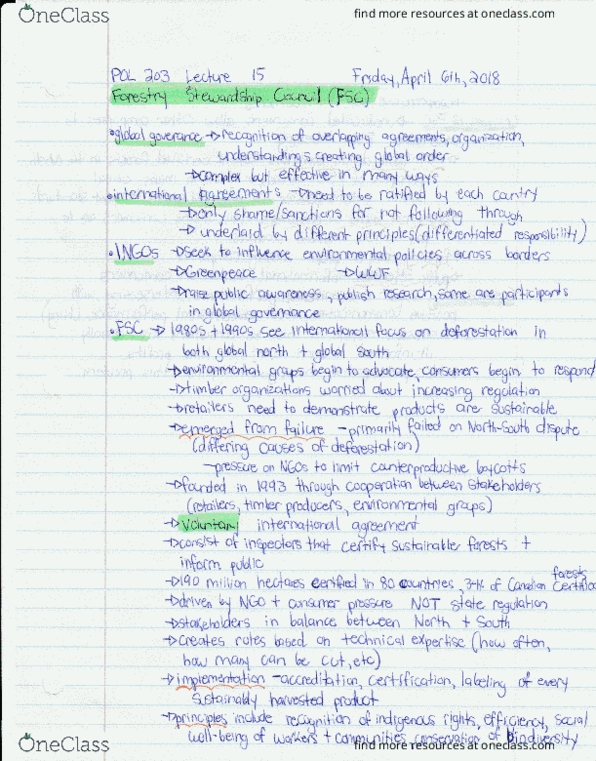 OneClass
find more resources at oneclass.com
POL 203 Lecture 15 Friday, April 6th, 2018
Forestry Stewardship Council (FSC)
• global governance → recognition of overlapping agreements, organization,
understandings creating global order
→ complex but effective in many ways
• international agreements → need to be ratified by each country
→ only shame/sanctions for not following through
→ underlaid by different principles (differentiated responsibility)
• INGOs → seek to influence environmental policies across borders
→ Greenpeace → WWF
→ raise public awareness, publish research, some are participants
in global governance
• FSC → 1980s + 1990s see international focus on deforestation in
both global north + global south
→ environmental groups begin to advocate, consumers begin to respond
→ timber organizations worried about increasing regulation
→ retailers need to demonstrate products are sustainable
→ emerged from failure - primarily failed on North-South dispute
(differing causes of deforestation)
- pressure on NGOs to limit counterproductive boycotts
→ founded in 1993 through cooperation between stakeholders
(retailers, timber producers, environmental groups)
→ voluntary international agreement
→ consist of inspectors that certify sustainable forests +
inform public
→ 190 million hectares certified in 80 countries, of Canadian forests
→ driven by NGO + consumer pressure NOT state regulation
→ stakeholders in balance between North + South
→ creates rules based on technical expertise (how often,
how many can be cut, etc)
→ implementation - accreditation, certification, labeling of every
sustainably harvested product
→ principles include recognition of indigenous rights, efficiency, social
well-being of workers + communities, conservation of biodiversity
OneClass
find more resources at oneclass.com